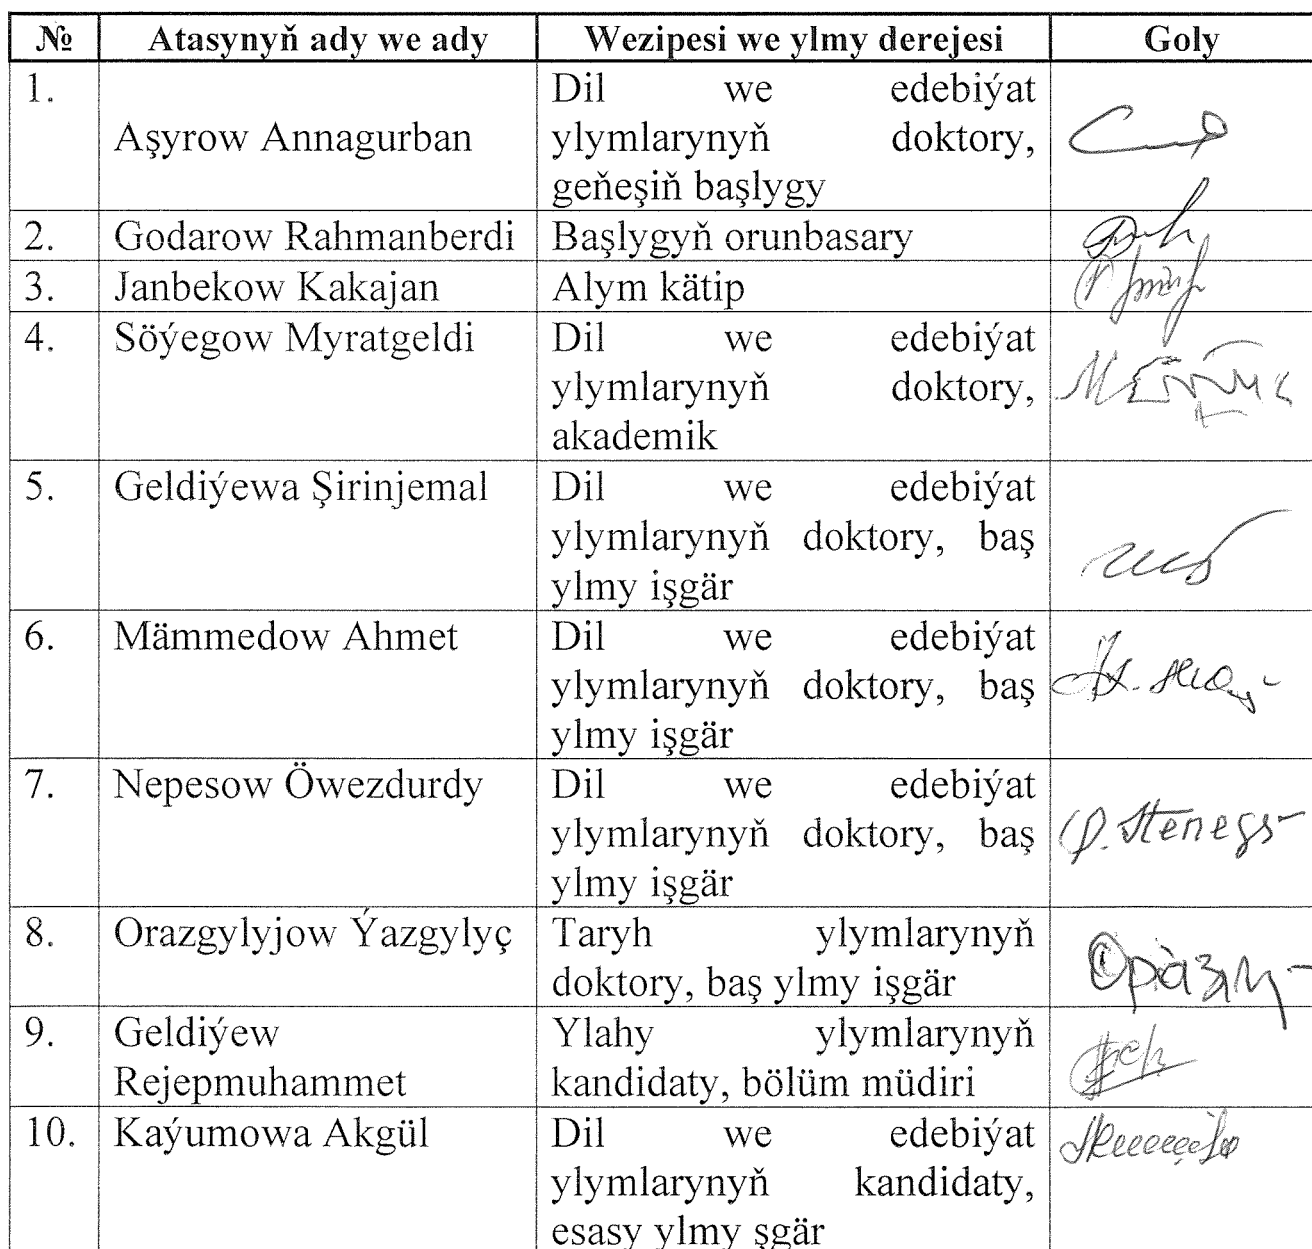 № Atasynyň ady we ady Wezipesi we ylmy derejesi Goly
1. Aşyrow Annagurban Dil we edebiýat
ylymlarynyň doktory,
geňeşiň başlygy
2. Godarow Rahmanberdi Başlygyň orunbasary
3. Janbekow Kakajan Alym kätip
4. Söýegow Myratgeldi Dil we edebiýat
ylymlarynyň doktory,
akademik
5. Geldiýewa Şirinjemal Dil we edebiýat
ylymlarynyň doktory, baş
ylmy işgär
6. Mämmedow Ahmet Dil we edebiýat
ylymlarynyň doktory, baş
ylmy işgär
7. Nepesow Öwezdurdy Dil we edebiýat
ylymlarynyň doktory, baş
ylmy işgär
8. Orazgylyjow Ýazgylyç Taryh ylymlarynyň
doktory, baş ylmy işgär
9. Geldiýew Ylahy ylymlarynyň
Rejepmuhammet kandidaty, bölüm müdiri
10. Kaýumowa Akgül Dil we edebiýat
ylymlarynyň kandidaty,
esasy ylmy şgär